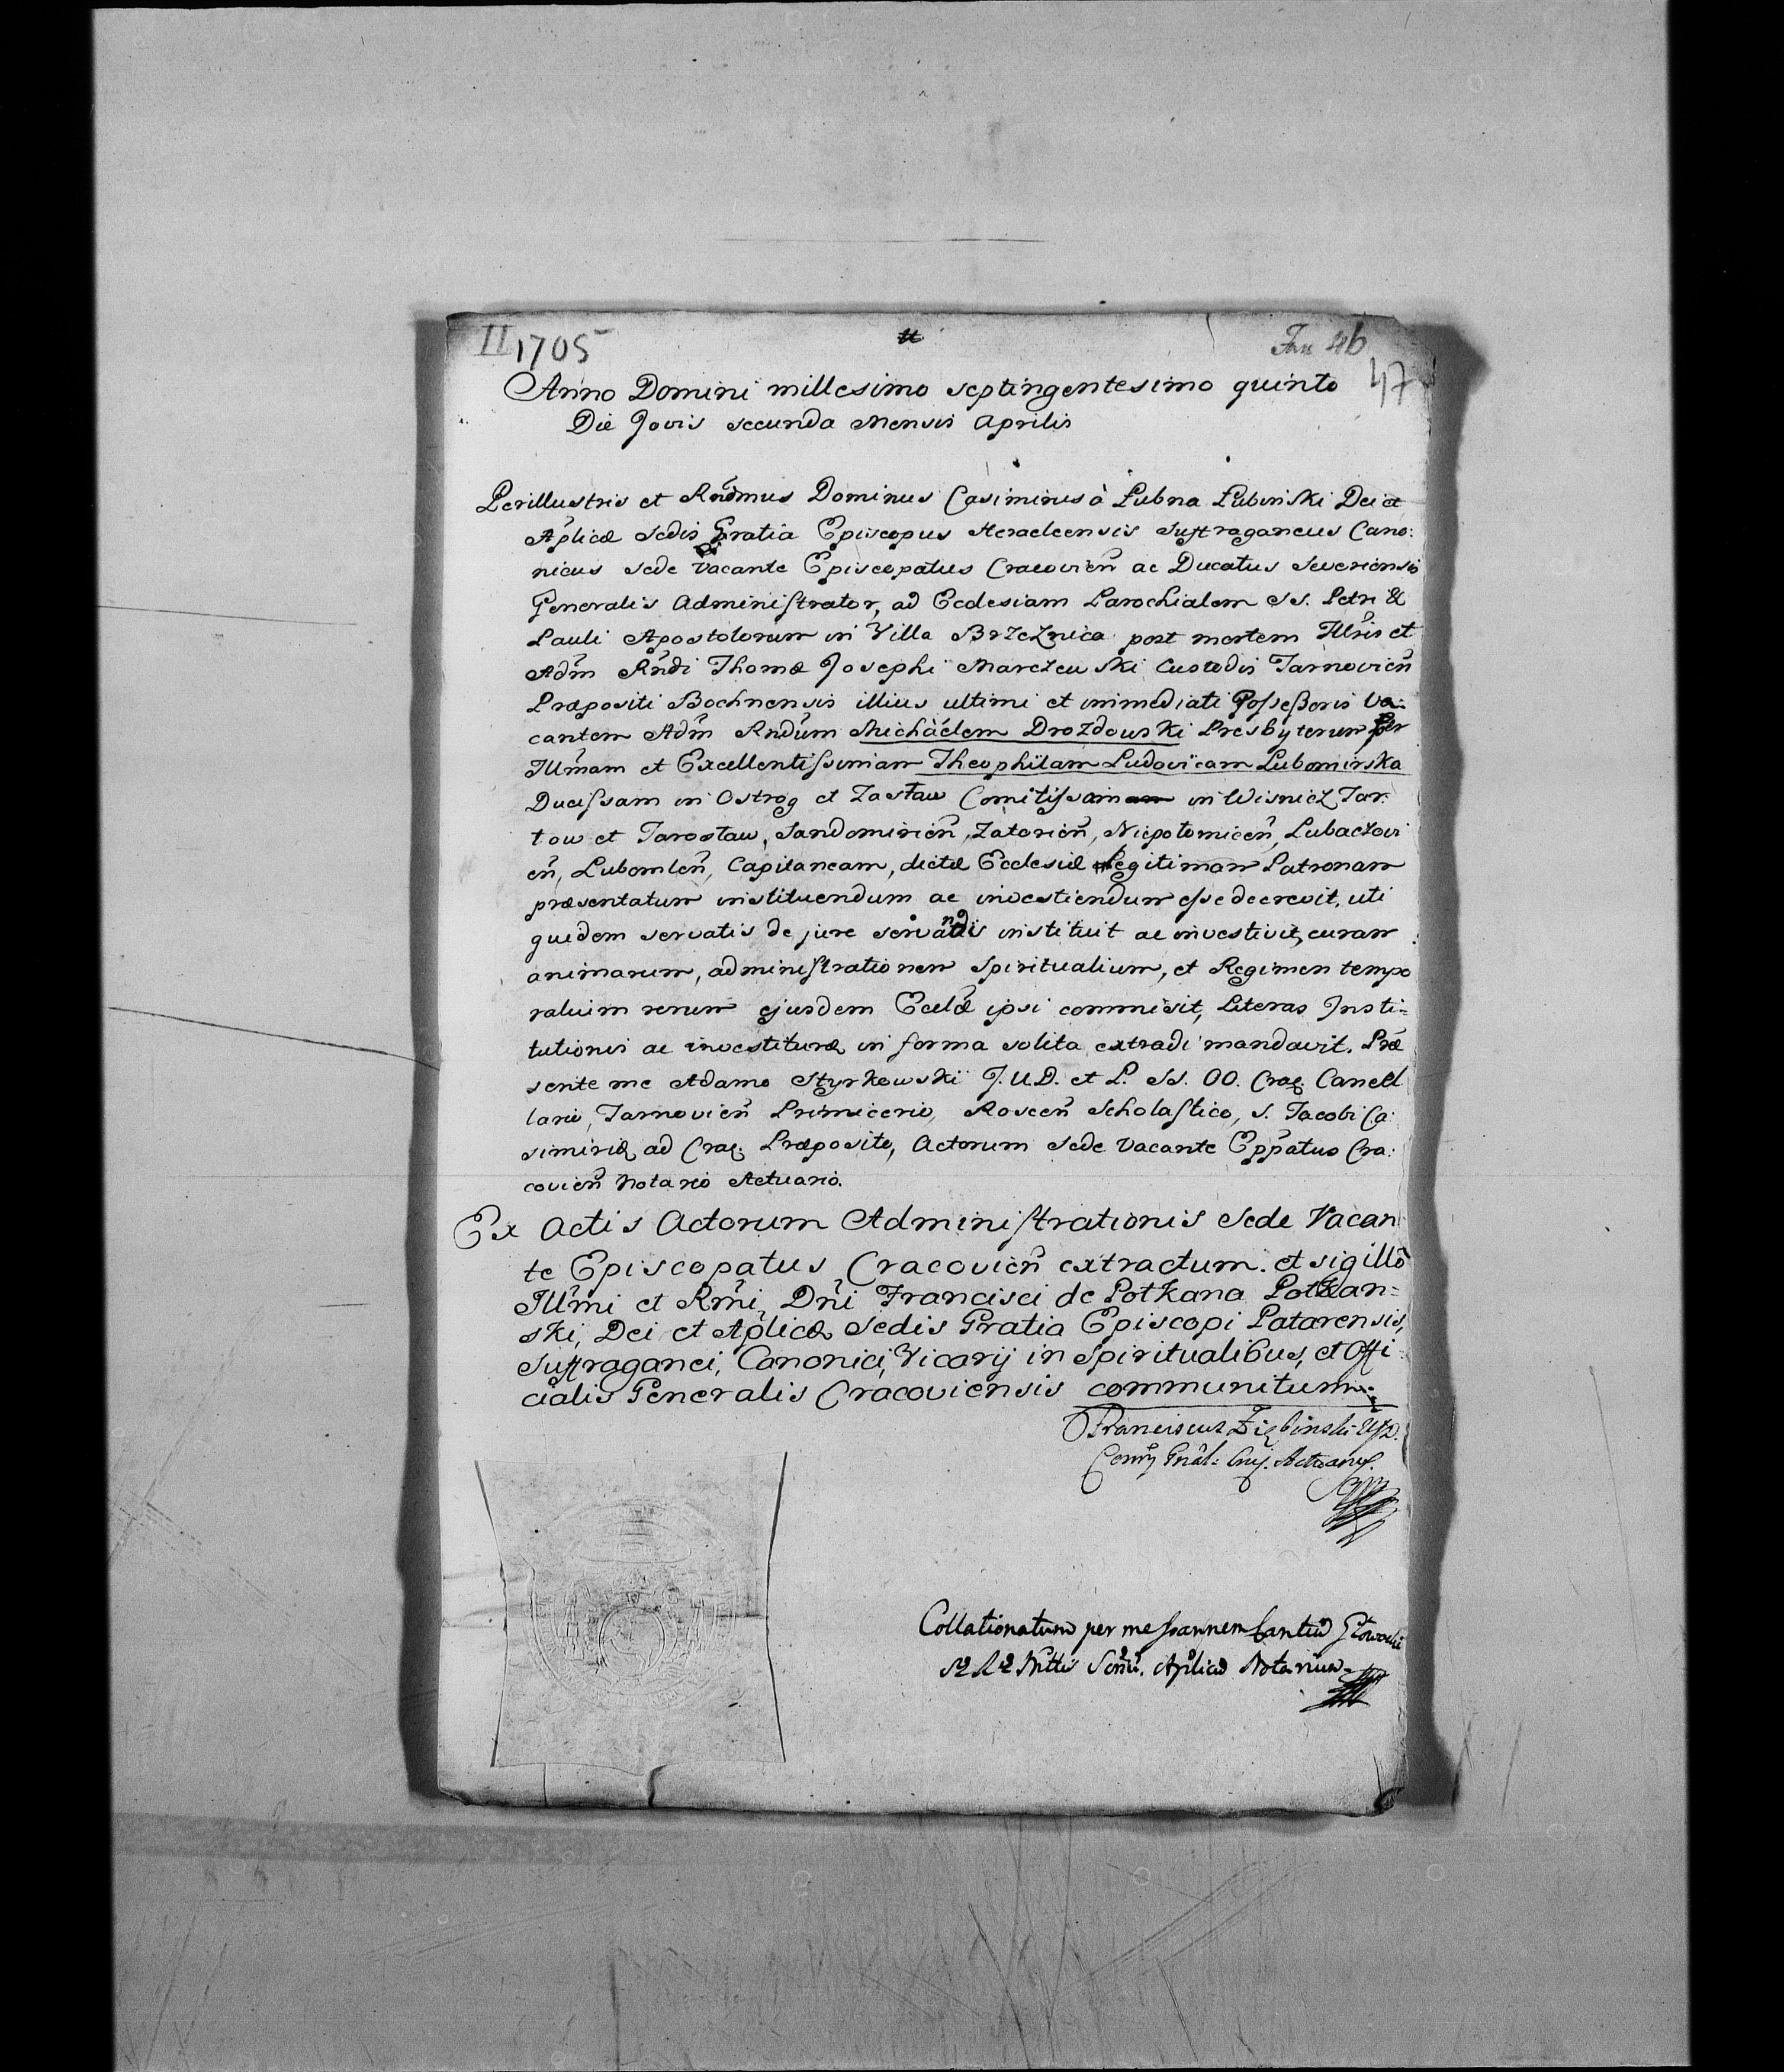 II 1705
46
47
Anno Domini millesimo septingentesimo quinto
Die Jovis secunda Mensis Aprilis
Perillustris et Rñdmus Dominus Casimirus à Łubna Łubinski Dei et
Aplicæ Sedis Gratia Episcopus Heracleensis Suffraganeus Cano:
nicus Sede Vacante Episcopatus Cracovien̄ ac Ducatus Severiensis
Generalis Administrator, ad Ecclesiam Parochialem SS. Petri &
Pauli Apostolorum in Villa Brzeznica post mortem Illr̃is et
Adm̃ Rñdi Thomæ Josephi Marczewski Custodis Tarnovien̄
Præpositi Bochnensis illius ultimi et immediati Possessoris Va:
cantem Adm̃ Rndũm Michàélem Drozdowski Presbyterum per
Illm̃am et Excellentissimam Theophilam Ludovicam Lubomirska
Ducissam in Ostrog et Zasław Comitissam in Wisnicz Jar:
tow et Jarosław, Sandomirien̄, Zatorien̄, Niepotomicen̄, Lubaczovi
en̄, Lubomlen̄, Capitaneam, dictæ Ecclesiæ Legitimam Patronam
præsentatum instituendum ac investiendum esse decrevit, uti
quidem servatis de jure servandis instituit ac investivit, curam
animarum, administrationem Spiritualium, et Regimen tempo
ralium rerum ejusdem Ecclæ̃ ipsi commisit, Literas Insti=
tutionis ac investituræ in forma solita extradi mandavit. Præ
sente me Adamo Styrkowski J.U.D. et P. SS. OO. Crac. Cancel
lario, Tarnovien̄ Primicerio, Roscen̄ Scholastico, S. Jacobi Ca:
simiriæ ad Crac. Præposito, Actorum Sede Vacante Epp̃atus Cra:
covien̄ Notario Actuario.
Ex Actis Actorum Administrationis Sede Vacan
te Episcopatus Cracovien̄ extractum. et sigillo
Illm̃i et Rm̃i Dñi Francisci de Potkana Potkan=
ski, Dei et Aplicæ Sedis Gratia Episcopi Patarensis,
Suffraganei, Canonici, Vicarij in Spiritualibus, et Offi
cialis Generalis Cracoviensis communitum.
Franciscus
Actuarius
Collationatum per me Joannem Cantium
Notarium